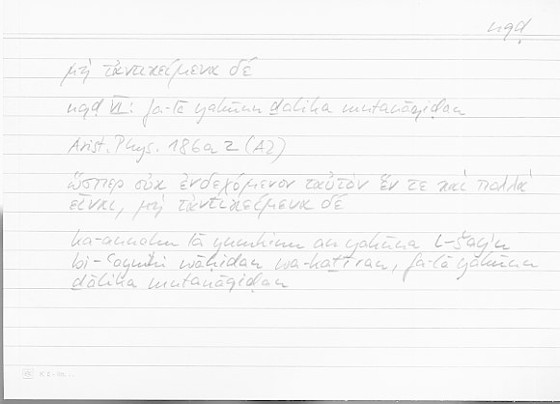 nqḍ
μὴ τἀντικείμενα δέ
nqḍ VI: fa-lā yakūnu ḏālika mutanāqiḍan
Arist. Phys. 186a2 (A2)
ὥσπερ οὐκ ἐνδεχόμενον ταὐτὸν ἕν τε καὶ πολλὰ
εἶναι, μὴ τἀντικείμενα δέ
ka-annahu lā yumkinu an yakūna l-šayʾu
bi-ʿaynihi wāḥidan wa-kaṯīran, fa-lā yakūnu
ḏālika mutanāqiḍan